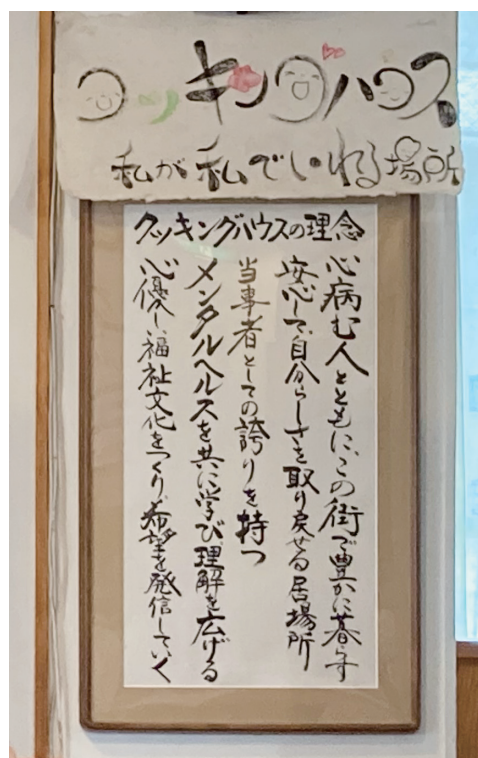 クッキングハウス
私が私でいれる場所
クッキングハウスの理念
心病む人とともに、この街で豊かに暮らす
安心して、自分らしさを取り戻せる居場所
当事者としての誇りを持つ
メンタルヘルスを共に学び、理解を広げる
心優しい福祉文化をつくり、希望を発信していく